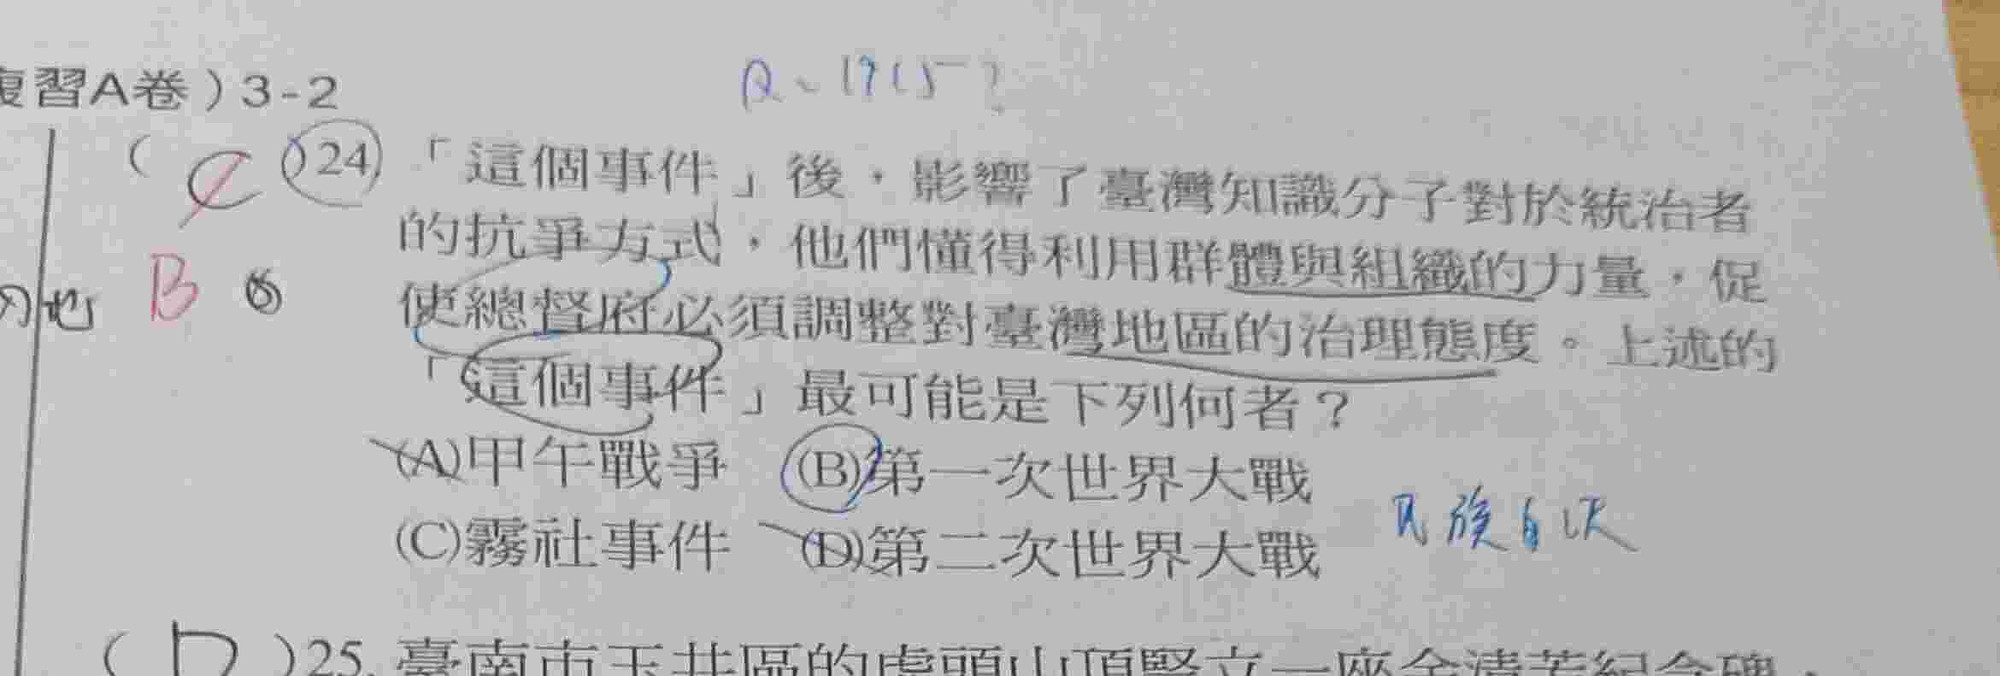 Q、1915?
復習A卷)3-2
( C )24 「這個事件」後，影響了臺灣知識分子對於統治者
的抗爭方式，他們懂得利用群體與組織的力量，促
B
使總督府必須調整對臺灣地區的治理態度。上述的
「這個事件」最可能是下列何者？
(A)甲午戰爭 (B)第一次世界大戰
(C)霧社事件 (D)第二次世界大戰
民族自決
( D )25. 臺南市玉井區的虎頭山頂豎立一座余清芳紀念碑，